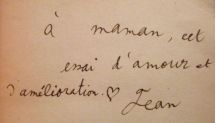 à maman, cet
essai d'amour et
d'amélioration. ♡
Jean